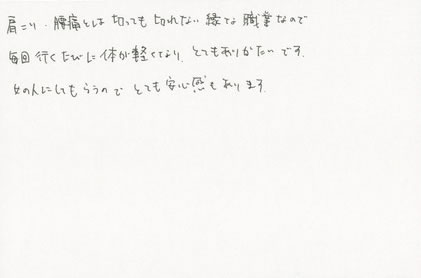 肩こり・腰痛とは切っても切れない縁な職業なので
毎回行くたびに体が軽くなり、とてもありがたいです。
女の人にしてもらうのでとても安心感もあります。